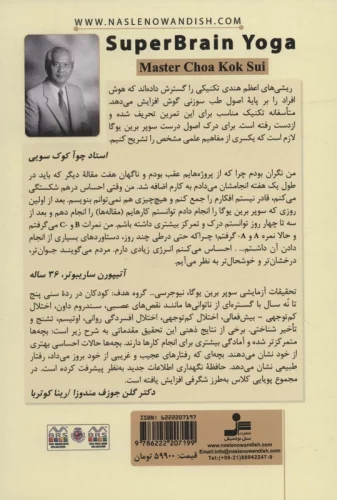 WWW.NASLENOWANDISH.COM
SuperBrain Yoga
Master Choa Kok Sui
ریشی‌های اعظم هندی تکنیکی را گسترش داده‌اند که هوش
افراد را بر پایهٔ اصول طب سوزنی گوش افزایش می‌دهد.
متأسفانه تکنیک مناسب برای این تمرین تحریف شده و
ازدست رفته است. برای درک اصول درست سوپر برین یوگا
لازم است که یکسری از مفاهیم علمی مشخص را تشریح کنیم.
استاد چوآ کوک سویی
من نگران بودم چرا که از پروژه‌هایم عقب بودم و ناگهان هفت مقالهٔ دیگر که باید در
طول یک هفته انجامشان می‌دادم به کارم اضافه شد. من وقتی احساس درهم شکستگی
می‌کنم، قادر نیستم افکارم را جمع کنم و هیچ‌چیزی هم نمی‌توانم بنویسم. بعد از اولین
روزی که سوپر برین یوگا را انجام دادم توانستم کارهایم (مقاله‌ها) را انجام دهم و بعد از
سه تا چهار روز توانستم درک و تمرکز بیشتری داشته باشم. من نمرات B و C- می‌گرفتم
و حالا نمره A و A- گرفتم، چراکه حتی درطی چند روز، دستاوردهای بسیاری از انجام
دادن آن داشتم... احساس می‌کنم انرژی زیادی دارم. مردم می‌گویند جوان‌تر،
درخشان‌تر و خوشحال‌تر به نظر می‌آیم.
آتیپورن ساریبوتر، ۳۶ ساله
تحقیقات آزمایشی سوپر برین یوگا، نیوجرسی- گروه هدف: کودکان در ردهٔ سنی پنج
تا نُه سال با گستره‌ای از ناتوانی‌ها مانند نقص‌های عصبی، سندروم داون، اختلال
کم‌توجهی - بیش‌فعالی، اختلال کم‌توجهی، اختلال افسردگی روانی، اوتیسم، تشنج و
تأخیر شناختی. برخی از نتایج ذهنی این تحقیق مقدماتی به شرح زیر است: بچه‌ها
متمرکزتر شده و آمادگی بیشتری برای انجام کارها دارند. بچه‌ها حالات احساسی بهتری
از خود نشان می‌دهند. بچه‌ای که رفتارهای عجیب و غریبی از خود بروز می‌داد، رفتار
طبیعی نشان می‌دهد. حافظهٔ نگهداری اطلاعات جدید به‌نظر پیشرفت کرده است. در
مجموع پویایی کلاس به‌طرز شگرفی افزایش یافته است.
دکتر گلن جوزف مندوزا / رینا کوتریا
ISBN: 6222207197
9 786222 207199
قیمت: ۵۹۹۰۰ تومان
نسل نواندیش
www.naslenowandish.com
Email:info@naslenowandish.com
Tel:(+98-21)88942247-9